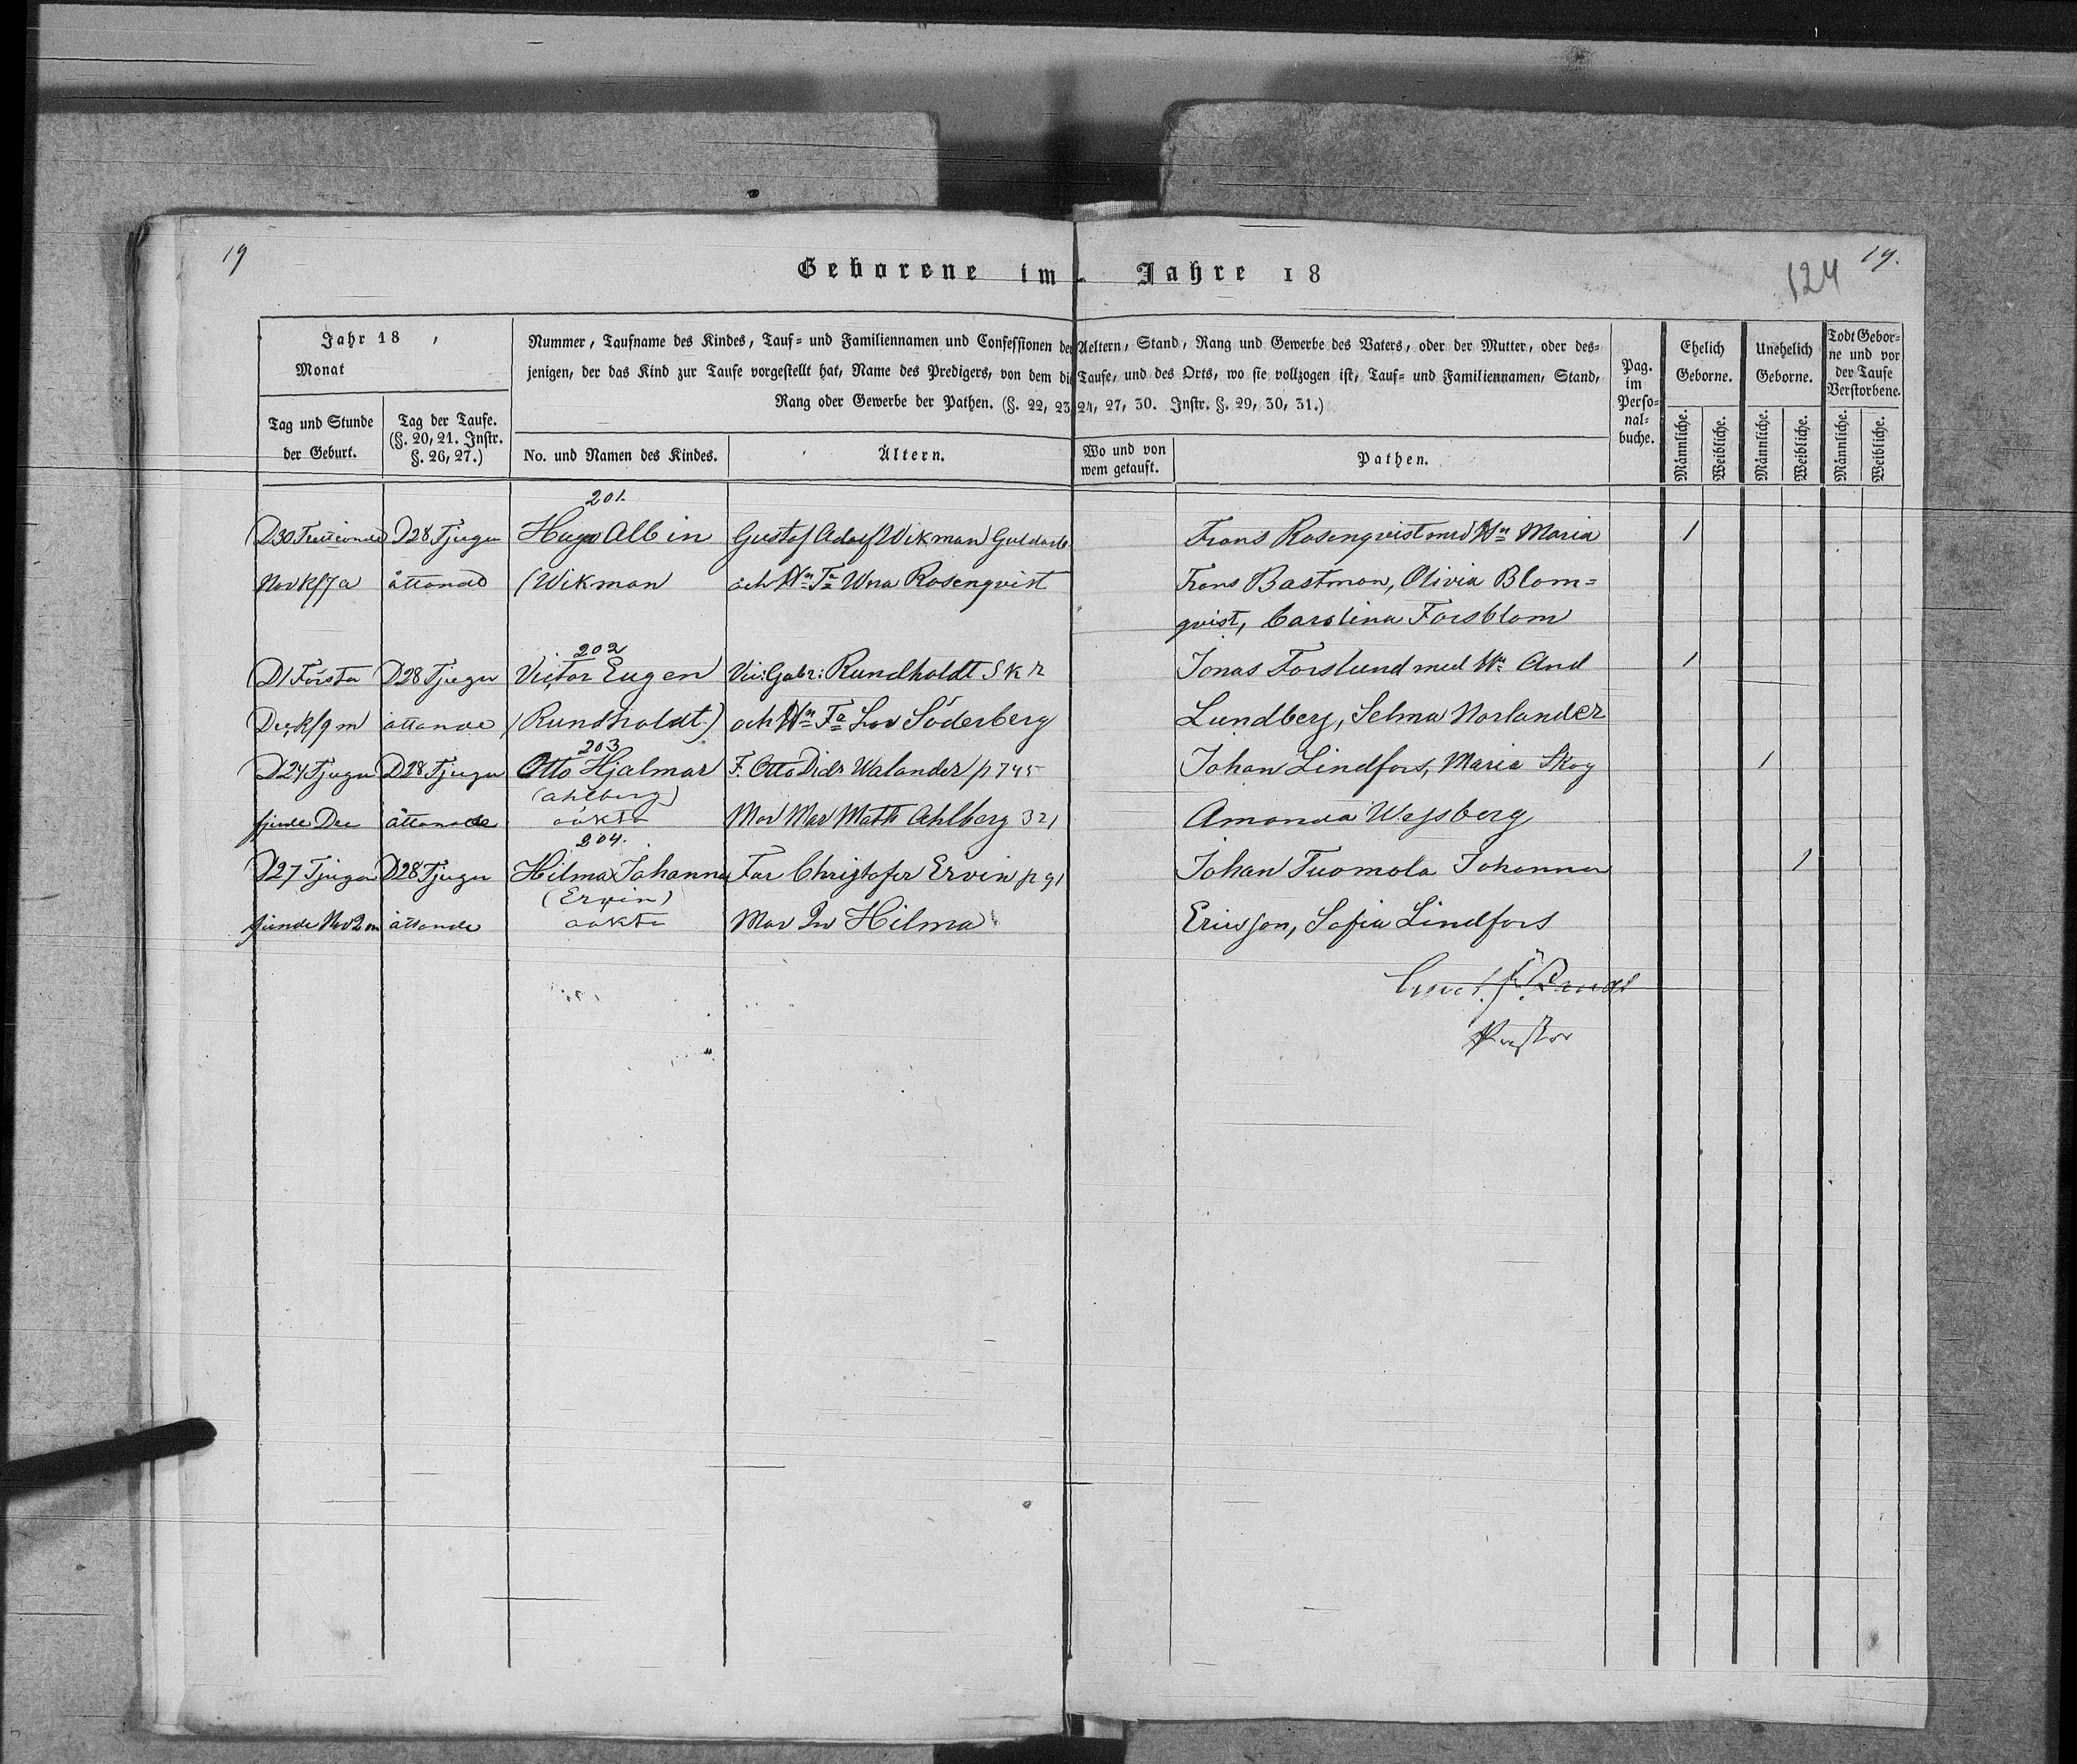 19
19.
124
Geborene im Jahre 18
Jahr 18 ,
Monat
Tag und Stunde
der Geburt.
Tag der Taufe.
(§. 20, 21. Instr.
§. 26, 27.)
Nummer, Taufname des Kindes, Tauf= und Familiennamen und Confessionen der Aeltern, Stand, Rang und Gewerbe des Vaters, oder der Mutter, oder des=
jenigen, der das Kind zur Taufe vorgestellt hat, Name des Predigers, von dem die Taufe, und des Orts, wo sie vollzogen ist, Tauf= und Familiennamen, Stand,
Rang oder Gewerbe der Pathen. (§. 22, 23, 24, 27, 30. Instr. §. 29, 30, 31.)
No. und Namen des Kindes.
Ältern.
Wo und von
wem getauft.
Pathen.
Pag.
im
Perso=
nal=
buche.
Ehelich
Geborne.
Unehelich
Geborne.
Todt Gebor=
ne und vor
der Taufe
Verstorbene.
Männliche. Weibliche. Männliche. Weibliche. Männliche. Weibliche.
201.
D 30 D 28 Tjugu Hugo Albin Gustaf Adolf Wikman Guldarb Frans Rosenqvist med Hn Maria 1
Nov Kl 7 a åttonde (Wikman och Hn Fa Rosenqvist Frans Bastman, Olivia Blom=
qvist, Carolina Forsblom
202
D 1 Första D 28 Tjugu Victor Eugen Vic: Gabr: Rundholdt S k r Jonas Forslund med Hn And 1
Dec Kl 9 m åttonde (Rundholdt) och Hn Fa Lov Söderberg Lundberg, Selma Norlander
203
D 24 Tjugu D 28 Tjugu Otto Hjalmar F. Otto Didr Walander p 745 Johan Lindfors, Maria Skog 1
(Ahlberg)
fjerde Dec åttonde oäkta Mor Mar Math Ahlberg 321 Amanda
204.
D 27 Tjugu D 28 Tjugu Hilma Johanna Far Christofer Ervin p 91 Johan Tuomola Johanna 1
(Ervin)
Nov 2 m åttonde oäkta Mor Hilma Ericsson, Sofia Lindfors
Pastor